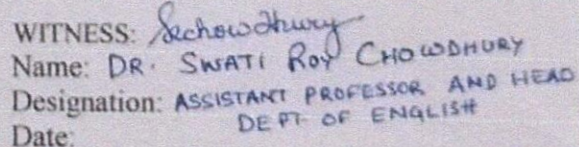 WITNESS: Sechowdhury
Name: DR. SWATI ROY CHOWDHURY
Designation: ASSISTANT PROFESSOR AND HEAD
DEPT OF ENGLISH
Date: